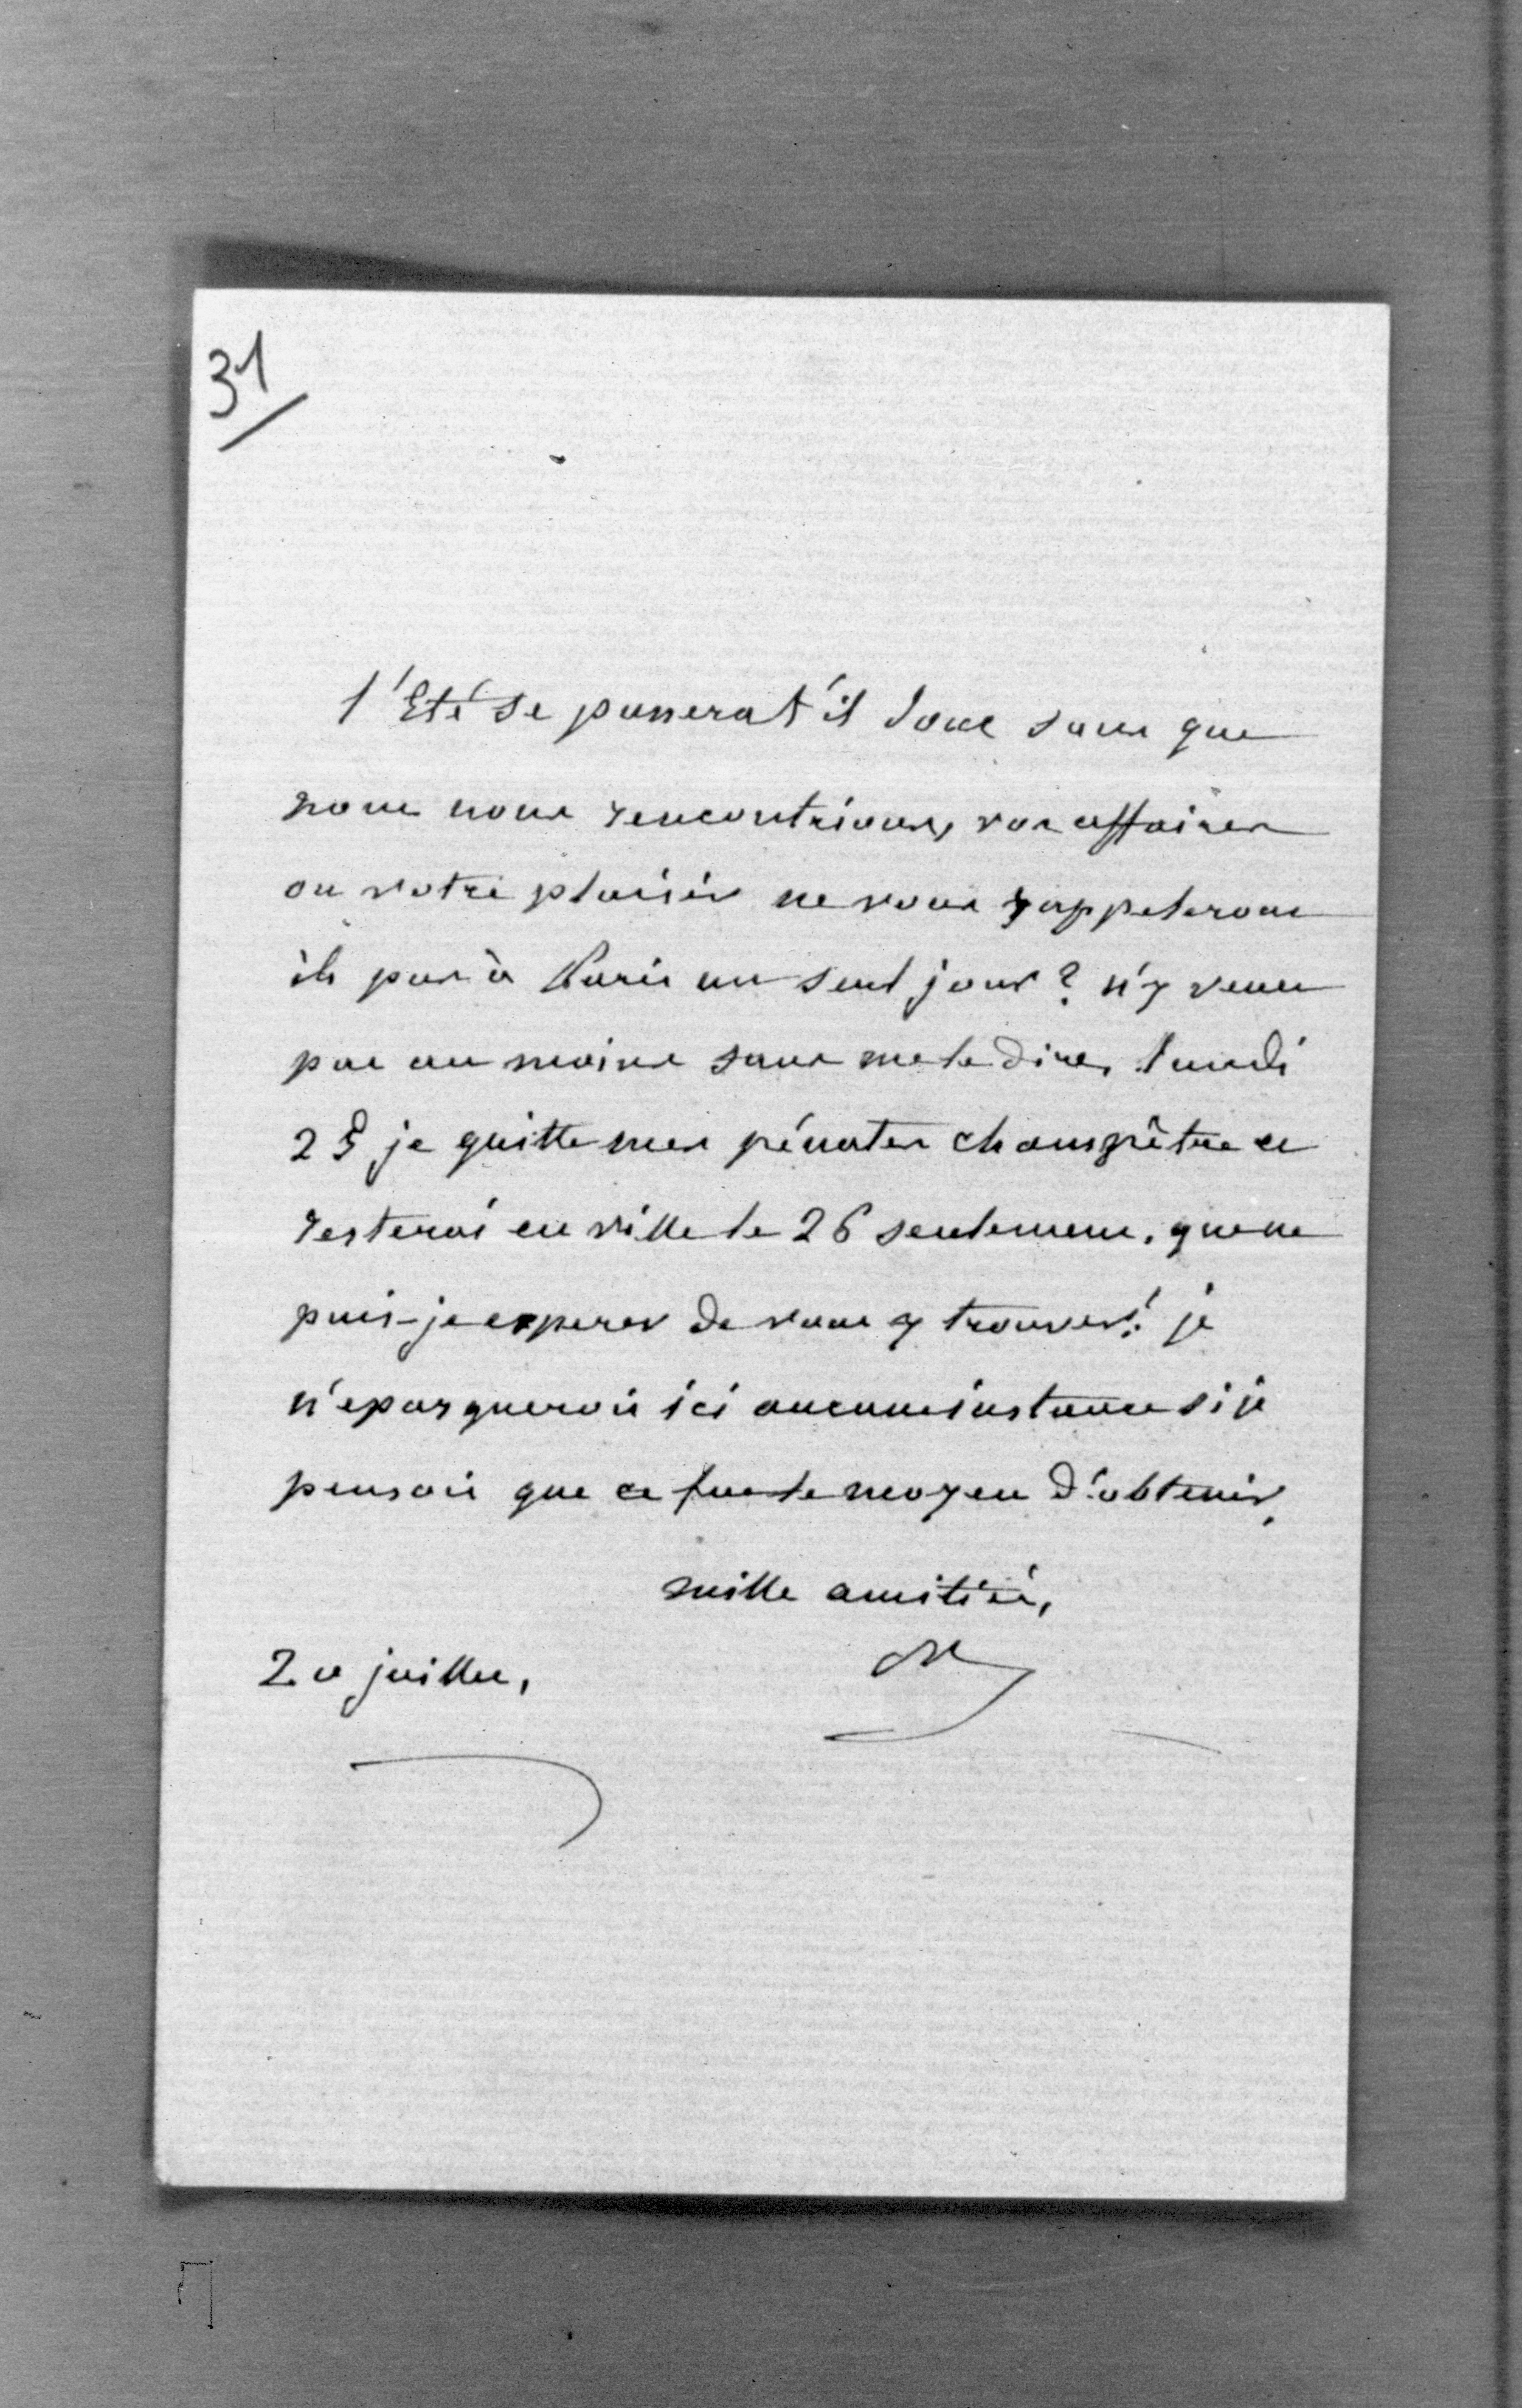 31
l'Eté se passerat'il donc sans que
nous nous rencontrions, vos affaires
ou votre plaisir ne vous rappeleront
ils pas à Paris un seul jour ? n'y venez
pas au moins sans me le dire, lundi
25 je quitte mes pénates champêtres et
resterai en ville le 26 seulement. que ne
puis-je esperer de vous y trouver! je
n'epargnerois ici aucune instance si je
pensois que ce fut le moyen d'obtenir.
mille amitiés,
20 juillet,